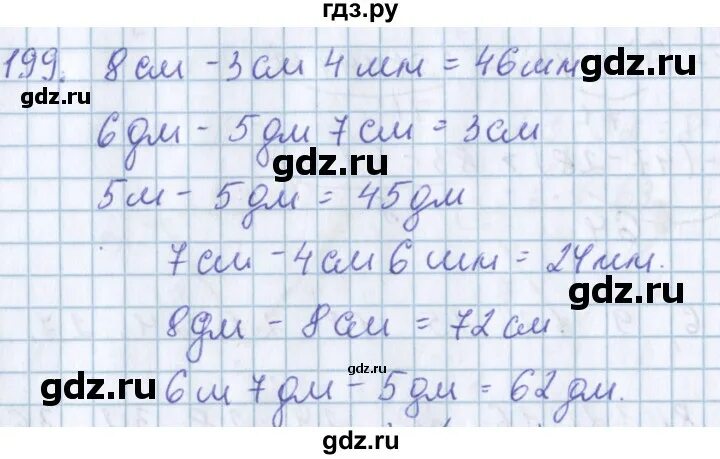 гдз.ру
199. 8 см - 3 см 4 мм = 46 мм gdz.ru
gdz.ru
6 дм - 5 дм 7 см = 3 см
gdz.ru
5 м - 5 дм = 45 дм
7 см - 4 см 6 мм = 24 мм.
gdz.ru
8 дм - 8 см = 72 см.
gdz.ru
gdz.ru 6 м 7 дм - 5 дм = 62 дм.
gdz.ru